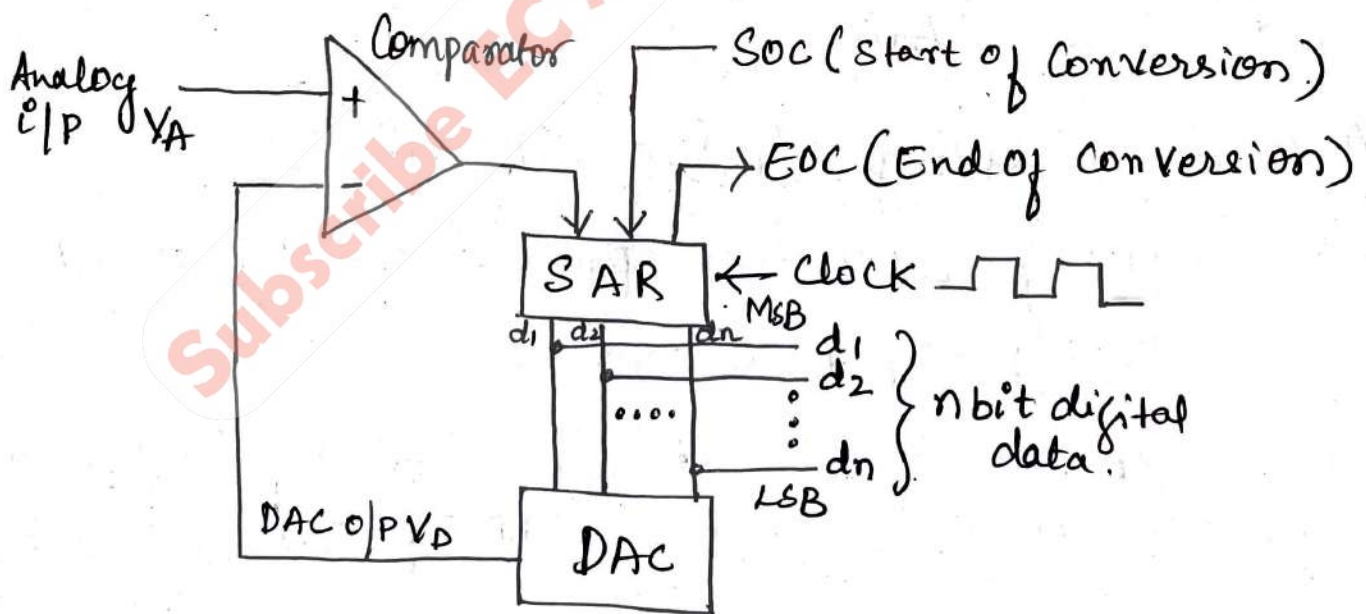 Subscribe EC
Comparator
SOC (Start of Conversion)
Analog
i/P VA
+
-
EOC (End of Conversion)
SAR
Clock
MSB
d1 d2 dn
d1
d2
dn
LSB
n bit digital
data.
DAC O/P VD
DAC